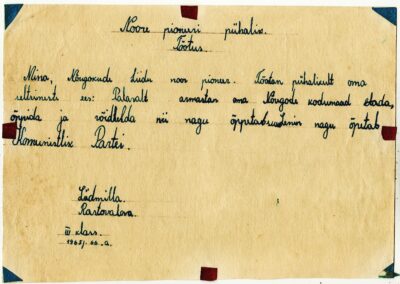 Noore pioneeri pühalik
Tõotus.
Mina, Nõugokude Liidu noor pioneer. Tõotan pühalikult oma
seltsinesti ees: Palavalt armastan oma Nõugode kodumaad elada,
õppida ja võidelda nii nagu õppetas Lenin nagu õpetab
Kommunistlik Partei.
Lüdmilla.
Rastovalova.
III klass.